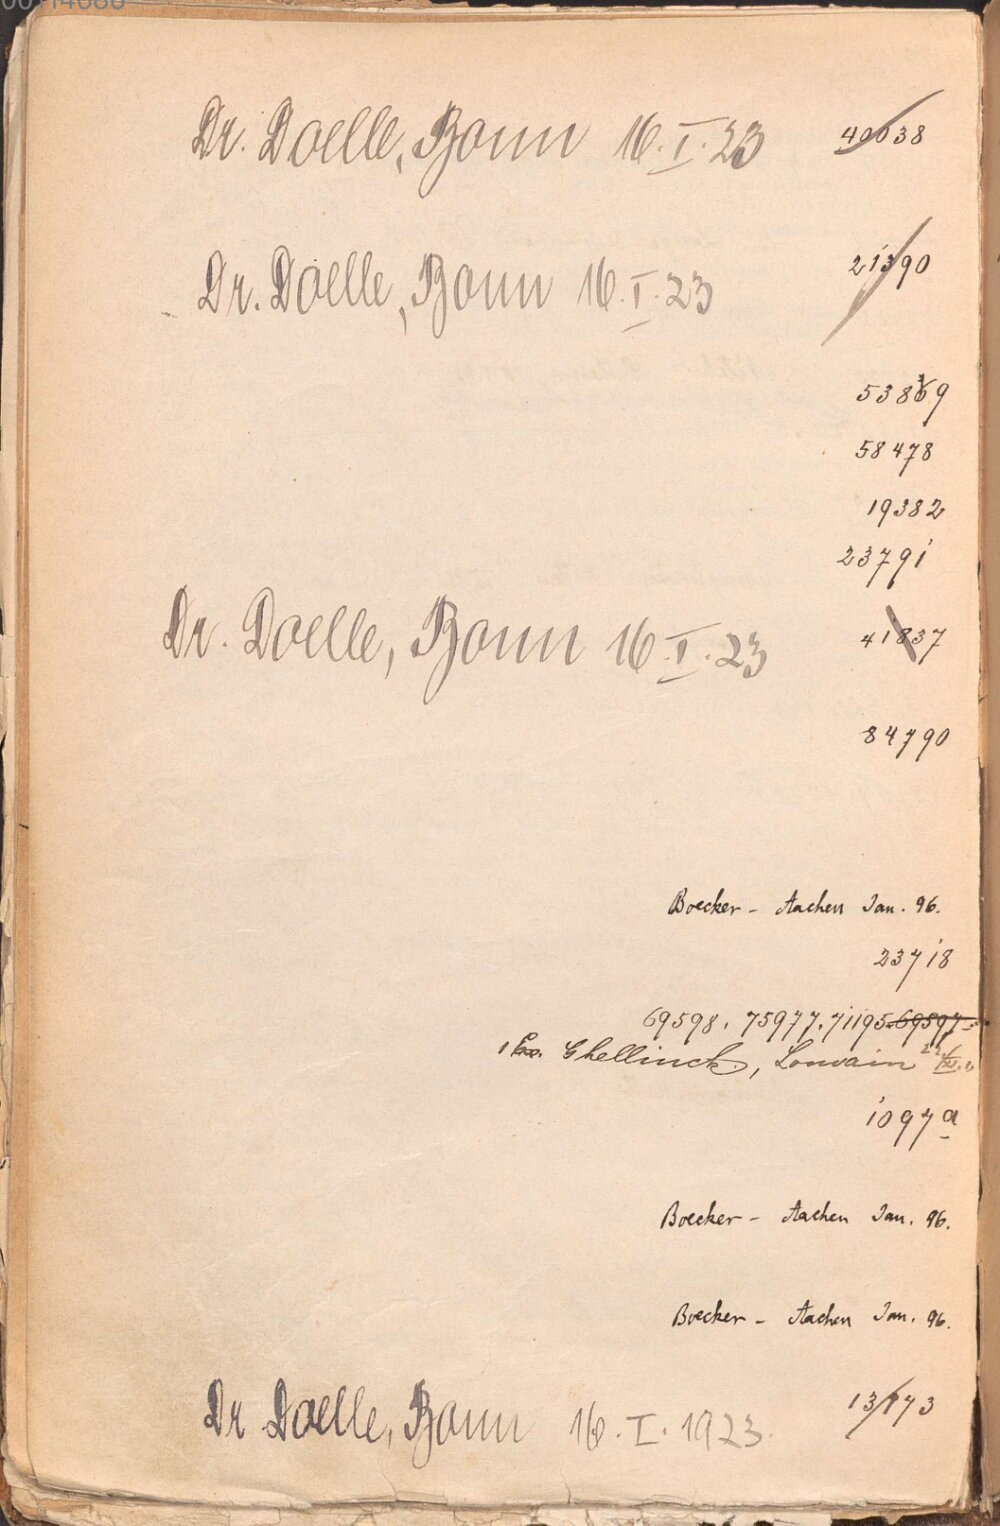 Dr. Doelle, Bonn 16. I. 23 40038
Dr. Doelle, Bonn 16. I. 23 21390
53839
58478
19382
23791
Dr. Doelle, Bonn 16. I. 23 41837
84790
Boecker - Aachen Jan. 96.
23718
69598. 75977. 71195. 69597.
Ghellinck, Louvain
1097a
Boecker - Aachen Jan. 96.
Boecker - Aachen Jan. 96.
Dr Doelle, Bonn 16. I. 1923. 13173